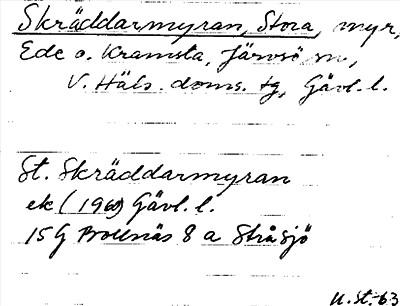 Skräddarmyran, Stora, myr,
Ede o. Kramsta, Järvsö sn,
V. Häls. doms. tg, Gävl. l.
St. Skräddarmyran
ek (1960) Gävl. l.
15 G Bollnäs 8 a Stråsjö
U. St. -63